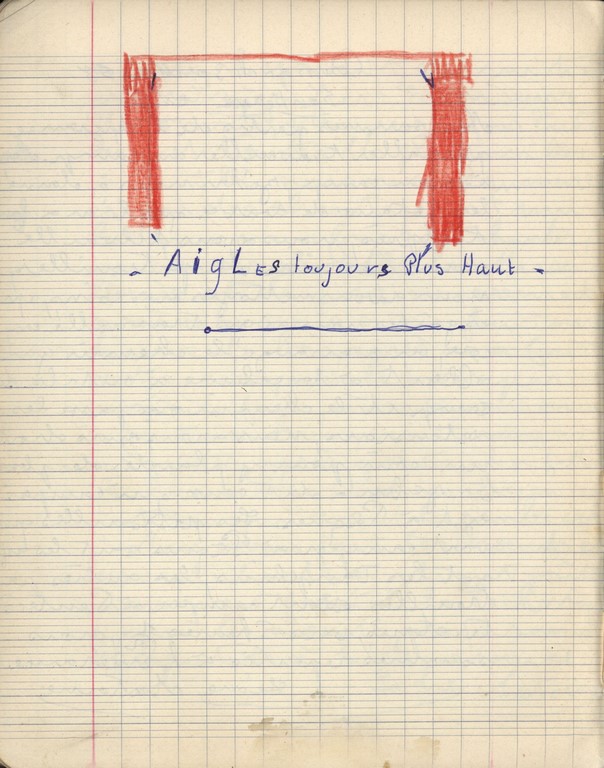 - AigLes toujours Plus Haut -